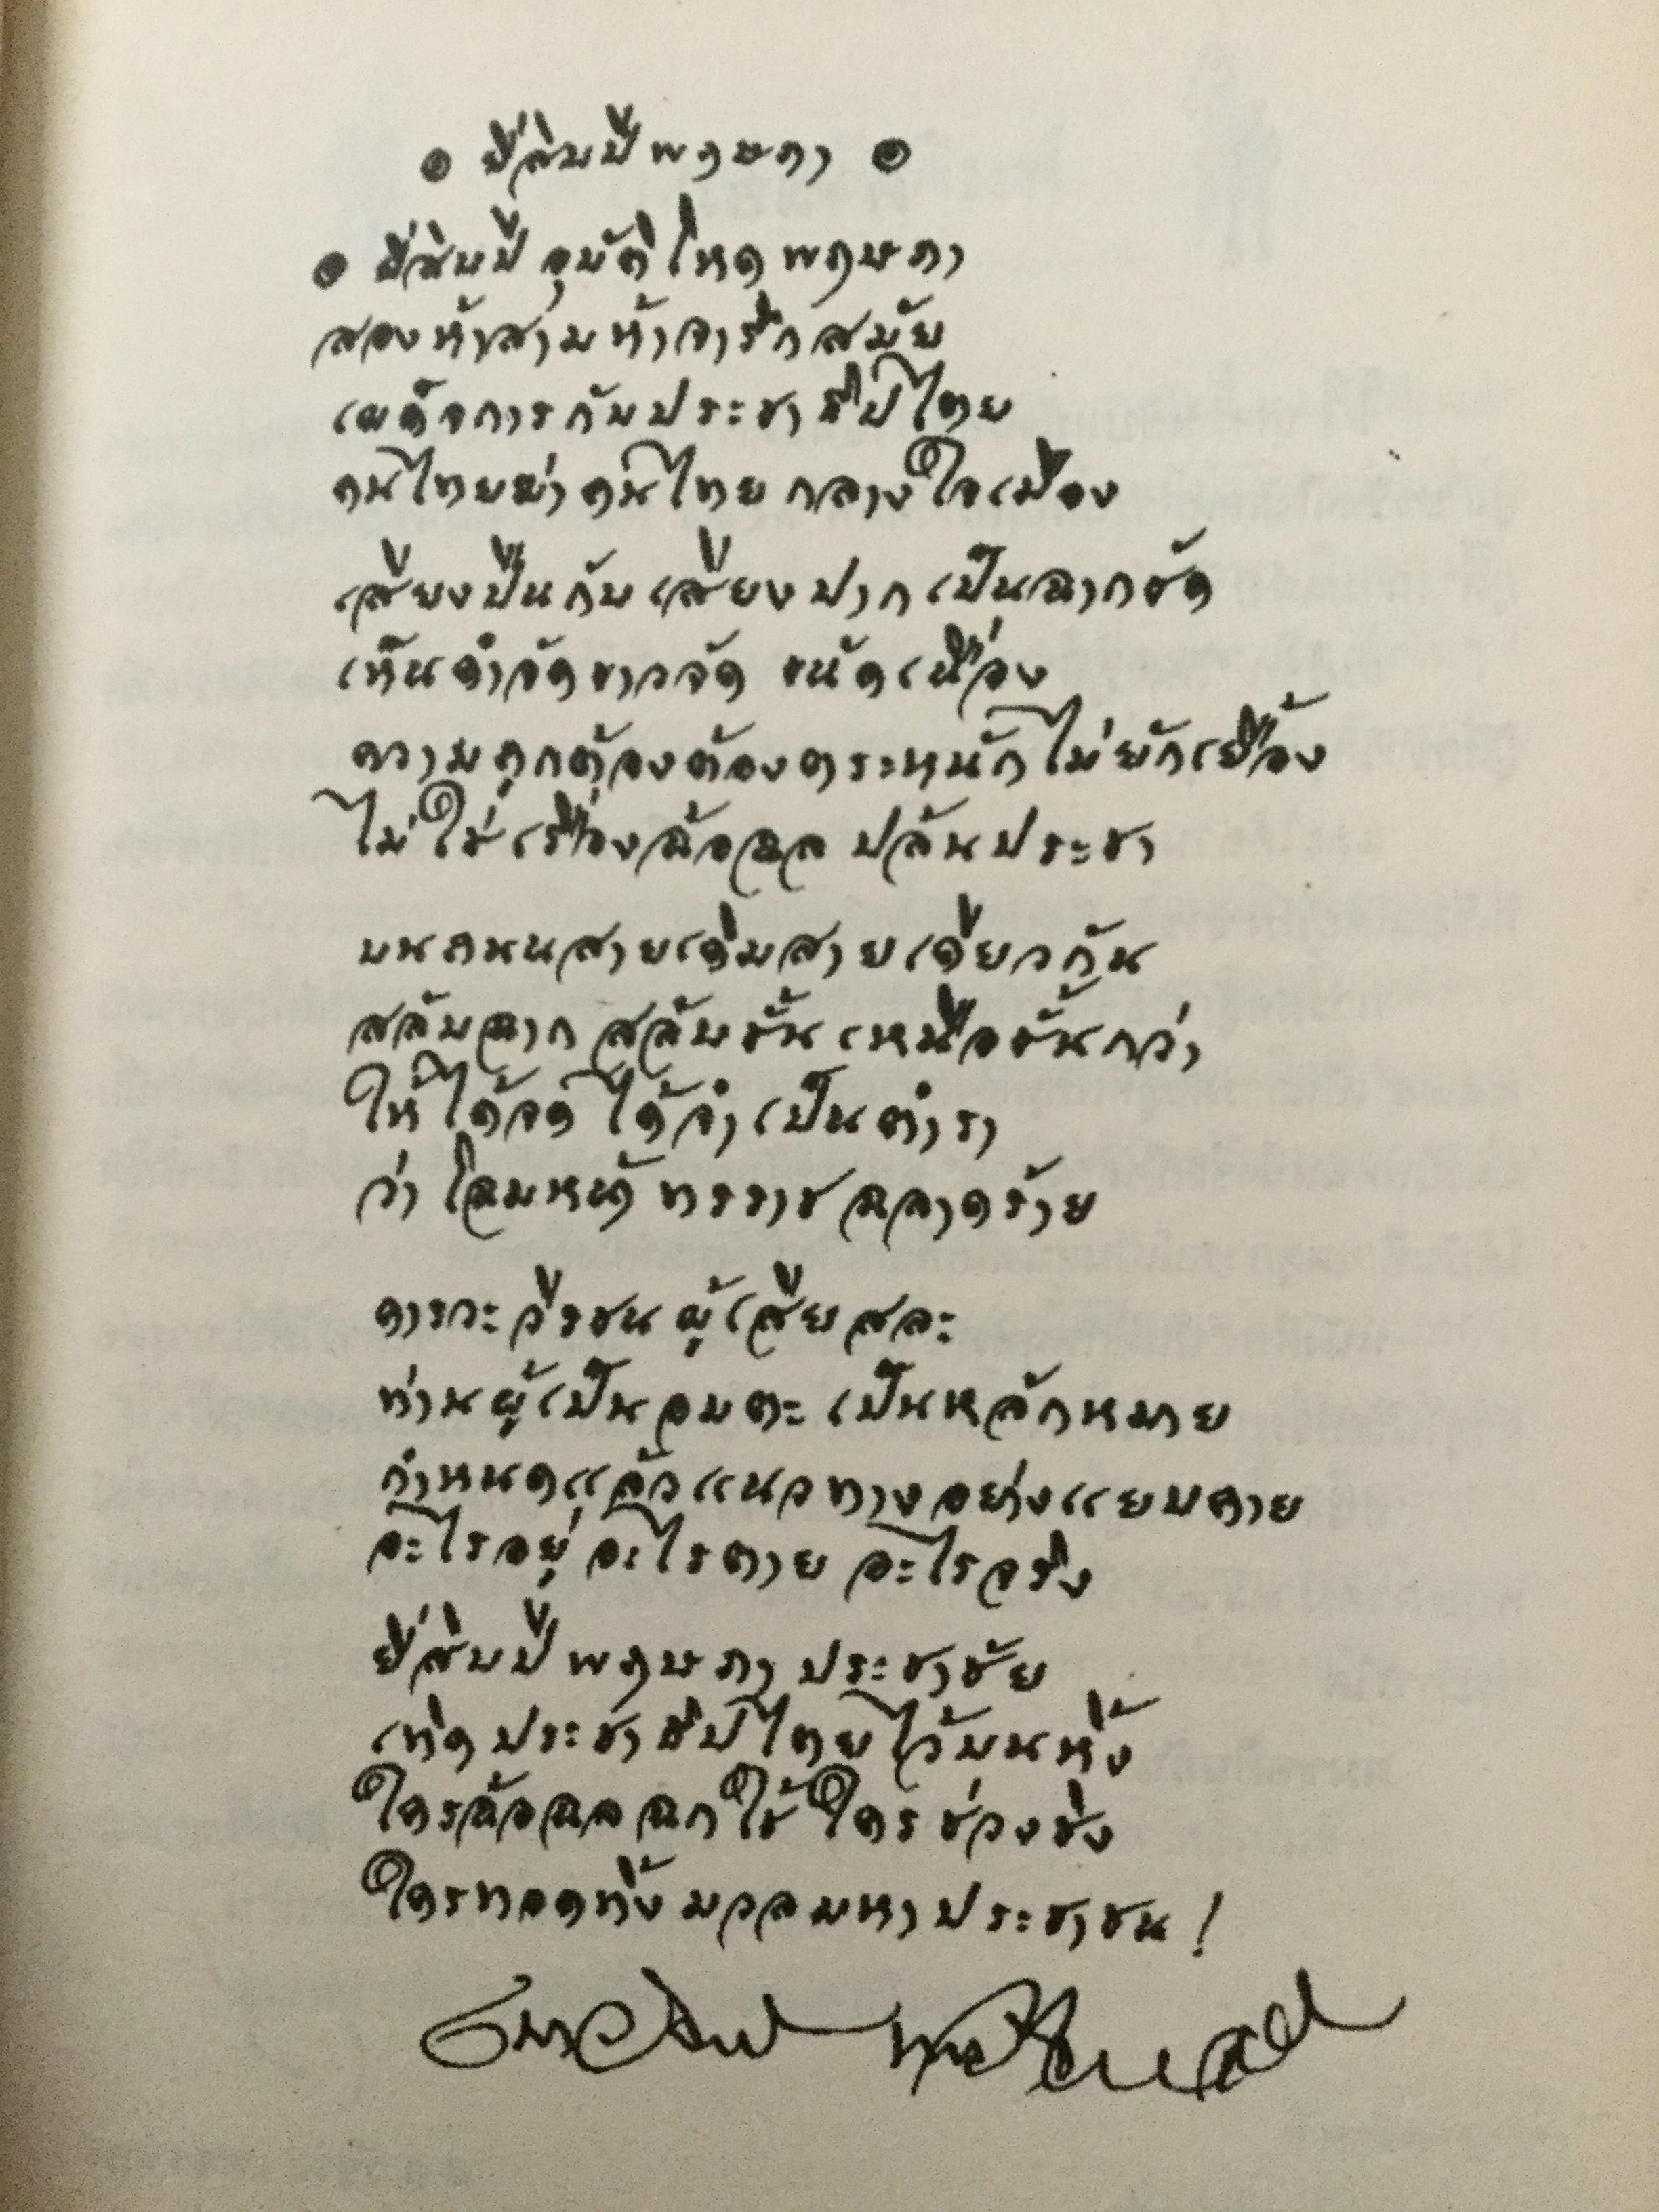 ๏ ยี่สิบปีพฤษภา ๏
๏ ยี่สิบปี อุบัติโหด พฤษภา
สองห้าสามห้าจารึกสมัย
เผด็จการกับประชาธิปไตย
คนไทยฆ่าคนไทย กลางใจเมือง
เสียงปืนกับเสียงปากเป็นฉากชัด
เห็นดำจัดขาวจัด ขนัดเนื่อง
ความถูกต้องต้องตระหนักไม่ยักเยื้อง
ไม่ใช่เรื่องฉ้อฉล ปล้นประชา
บนถนนสายเดิมสายเดียวกัน
สลับฉาก สลับชั้น เหนือชั้นกว่า
ให้ได้จด ได้จำ เป็นตำรา
ว่าโฉมหน้า ทรราช ฉลาดร้าย
คารวะ วีรชน ผู้เสียสละ
ท่านผู้เป็นอมตะ เป็นหลักหมาย
กำหนดแล้วแนวทางอย่างแยบคาย
อะไรอยู่ อะไรตาย อะไรจริง
ยี่สิบปี พฤษภา ประชาชัย
เทิดประชาธิปไตยไว้บนหิ้ง
ใครฉ้อฉล ฉกใช้ ใครช่วงชิง
ใครทอดทิ้ง มวลมหาประชาชน !
เนาวรัตน์ พงษ์ไพบูลย์